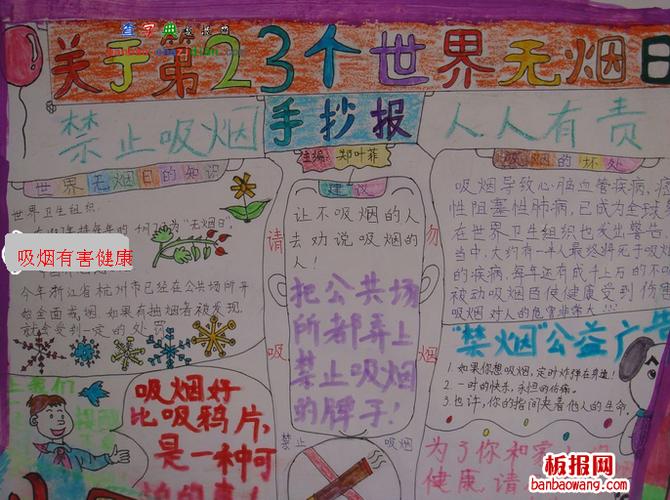 查字典板报网
关于第23个世界无烟日
禁止吸烟
手抄报
人人有责
主编:郑叶菲
世界无烟日的知识
世界卫生组织
吸烟有害健康
今年浙江省杭州市已经在公共场所开
始全面戒烟,如果有抽烟者被发现,
就会受到一定的处罚
吸烟好
比吸鸦片,
是一种可
请勿吸烟
建议
让不吸烟的人
去劝说吸烟的
人!
把公共场
所都弄上
禁止吸烟
的牌子!
禁止吸烟
吸烟的坏处
吸烟导致心脑血管疾病,
性阻塞性肺病,已成为全球
在世界卫生组织也发出警告,
当中,大约有一半人最终将死于吸
的疾病,每年还有成千上万的不
被动吸烟后使健康受到伤
吸烟对人的危害非常大!!!
"禁烟"公益广告
1.如果你想吸烟,定时炸弹在身边!
2.一时的快乐,永恒的伤痛。
3.也许,你的指间夹着他人的生命。
为了你和家
健康请
板报网
banbaowang.com